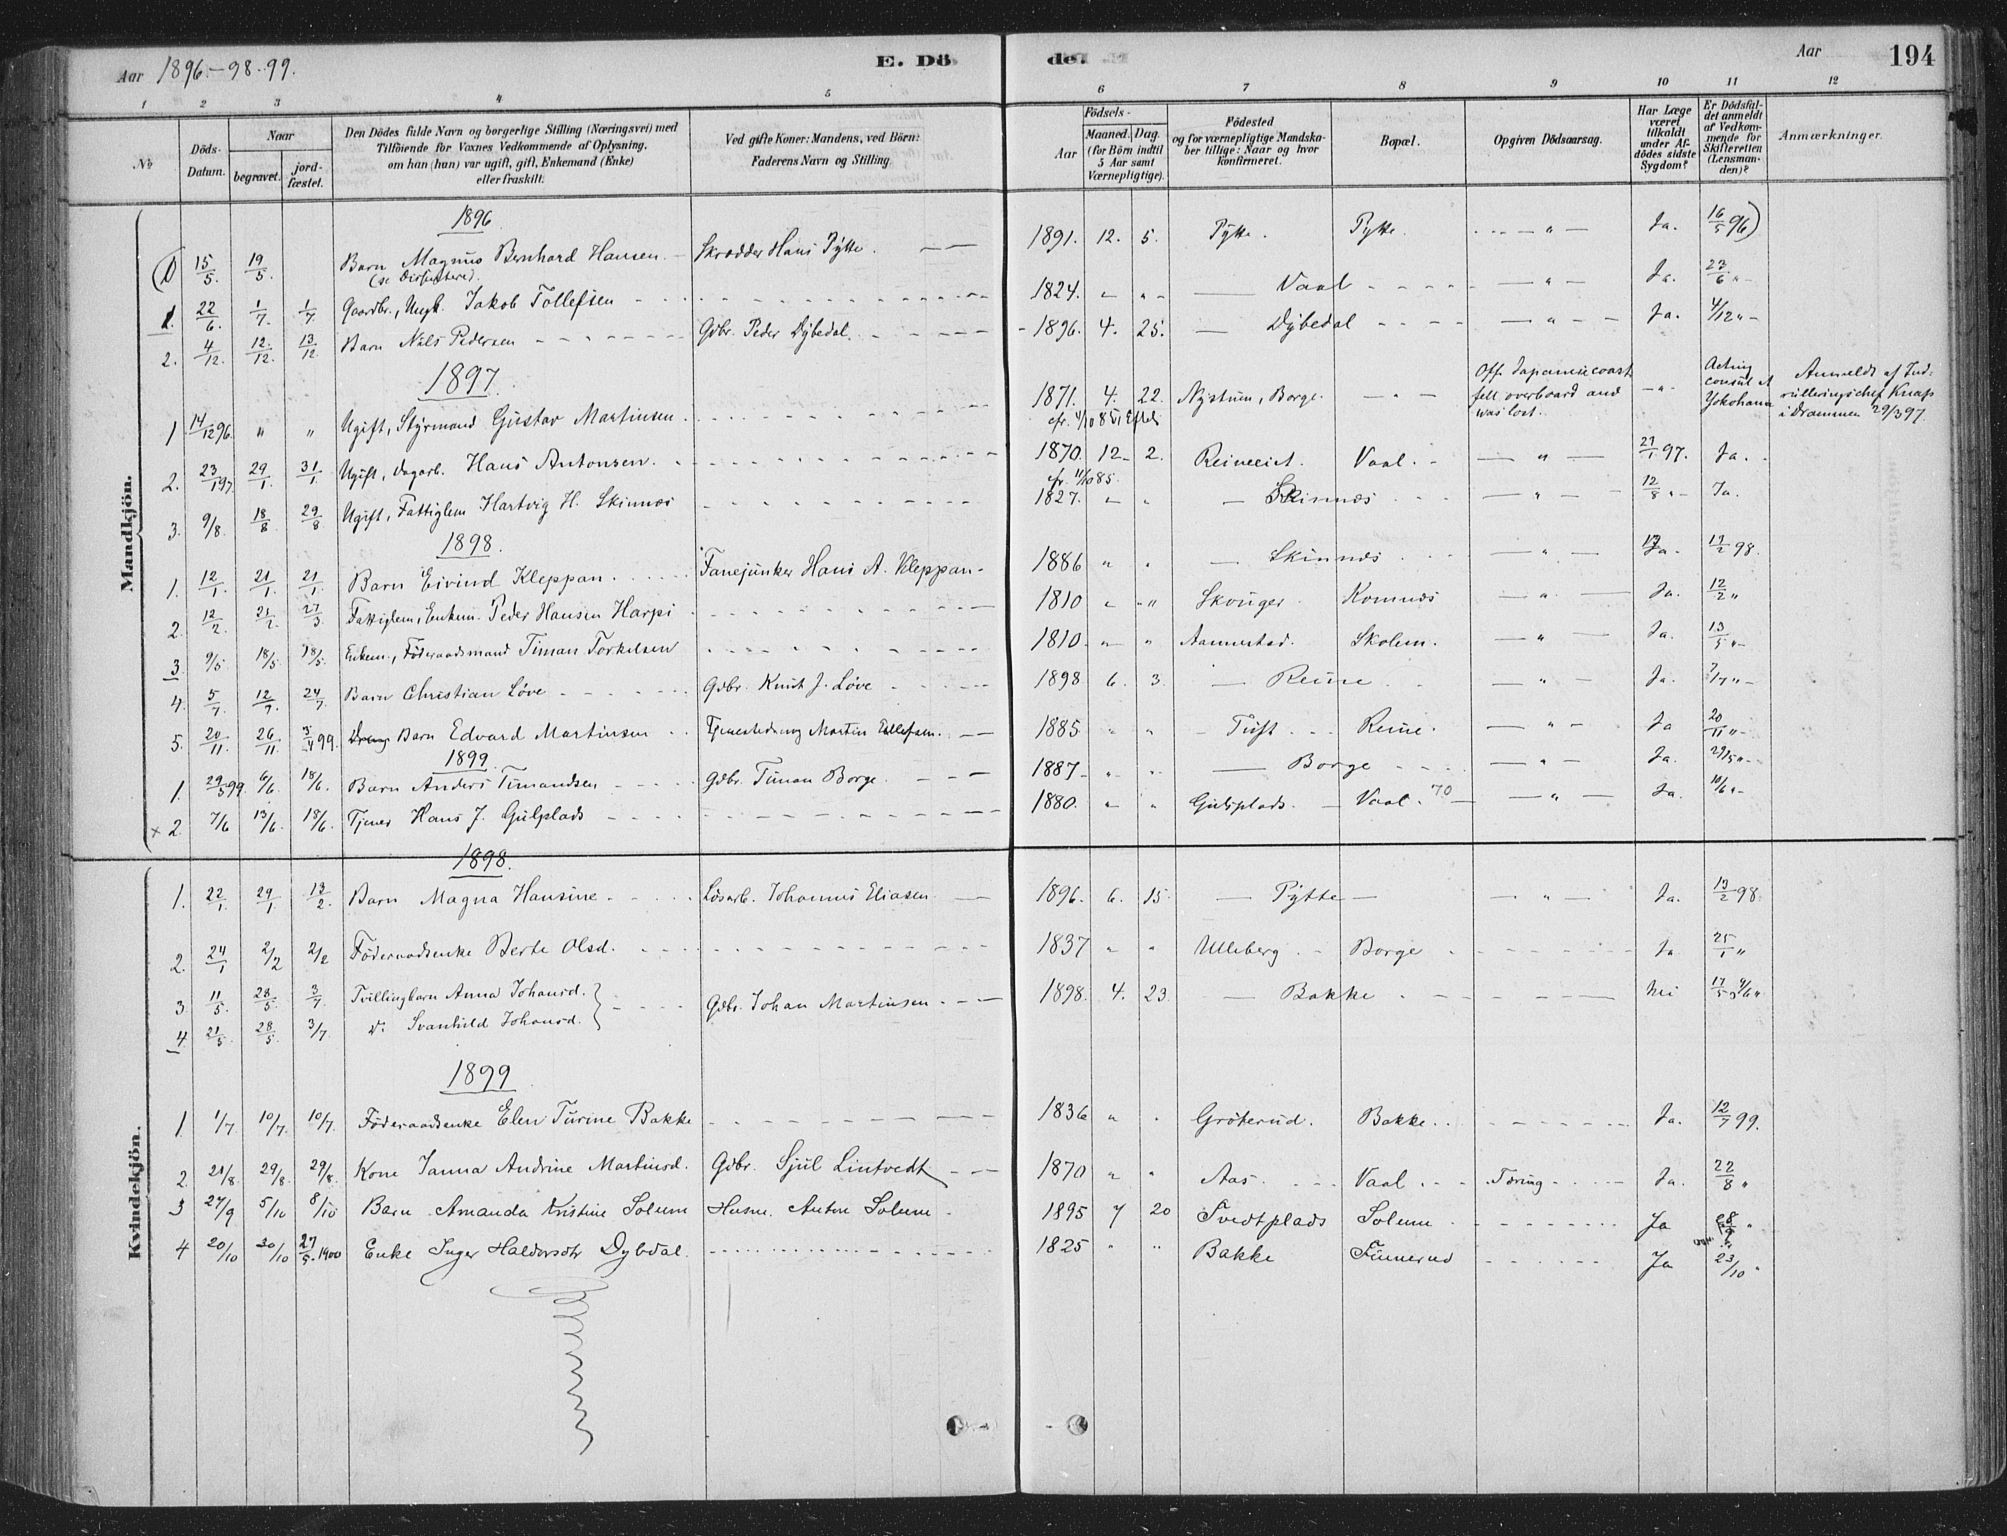 Aar 1896-98-99.
E. Dö
de.
Aar
194
1 2 3 4 5 6 7 8 9 10 11 12
No
Döds-Datum.
Naar
begravet.
jord-fæstet.
Den Dödes fulde Navn og borgerlige Stilling (Næringsvei) med
Tilföiende for Voxnes Vedkommende af Oplysning,
om han (hun) var ugift, gift, Enkemand (Enke)
eller fraskilt.
Ved gifte Koner: Mandens, ved Börn:
Faderens Navn og Stilling.
Födsels-
Aar
Maaned. Dag.
(for Börn indtil
5 Aar samt
Værnepligtige).
Födested
og for værnepligtige Mandska-
ber tillige: Naar og hvor
konfirmeret.
Bopæl.
Opgiven Dödsaarsag.
Har Læge
været
tilkaldt
under Af-
dödes sidste
Sygdom?
Er Dödsfal-
det anmeldt
af Vedkom-
mende for
Skifteretten
(Lensman-
den)?
Anmærkninger.
Mandkjön.
1896
(1) 15/5. 19/5. Barn Magnus Bernhard Hansen. Skrædder Hans Pytte. 1891. 12. 5. Pytte. Pytte. " Ja. 16/5 96)
1. 22/6. 1/7. 1/7 Gaardbr., Ungk. Jakob Tollefsen 1824. " " Vaal " Ja. 23/6 "
2. 4/12. 12/12. 13/12 Barn Nils Pedersen Gdbr. Peder Dybedal. 1896. 4. 25. Dybedal " Ja. 4/12 "
1897.
1 14/12 96. " " Ugift, Styrmand Gustav Martinsen. 1871. 4. 22. Nystuen, Borge. " Off Japanese coast
fell overboard and
was lost. " Acting
consul at
Yokohama Anmeldt af Ind-
rulleringschef Knap
i Drammen 29/3 97.
2. 23/1 97 29/1. 31/1. Ugift, Dagarb. Hans Antonsen. 1870. 12 2. Reineeiet. Vaal. " 27/1 97. Ja.
3. 9/8. 18/8 29/8 Ugift, Fattiglem Hartvig H. Skinnes 1827. " " Skinnes " 12/8 " Ja.
1898.
1. 12/1. 21/1. 21/1 Barn Eivind Kleppan. Fanejunker Hans A. Kleppan 1886 " " Skinnes " Ja. 17/2 98.
2. 12/2. 21/2. 27/3 Fattiglem, Enkem. Peder Hansen Harpi 1810 " " Skouger Komnes " Ja. 12/2 "
3. 9/5 18/5 18/5. Enkem., Föderaadsmand Timan Torkelsen 1810. " " Aamestad. Skolem. " Ja. 13/5 "
4. 5/7. 12/7. 24/7 Barn Christian Löve Gdbr. Knut J. Löve 1898 6. 3. Reine " Ja. 7/7 "
5. 20/11. 26/11 3/4 99. Barn Edvard Martinsen Tjenestedreng Martin Tollefsen. 1885 " " Tuft Reine. " Ja 20/11 "
1899.
1. 29/5 99. 6/6. 18/6. Barn Anders Timandsen Gdbr. Timan Borge. 1887 " " Borge " Ja. 29/5 "
x 2. 7/6 13/6. 18/6. Tjener Hans J. Gulplads 1880. " " Gulsplads. Vaal. 70 " Ja. 10/6 "
Kvindekjön.
1898.
1. 22/1. 29/1. 13/2. Barn Magna Hansine. Lösarb. Johannes Eliasen 1896. 6. 15. Pytte " Ja. 13/2 98.
2. 24/1 2/2 2/2 Föderaadsenke Berte Olsd. 1837 " " Ulleberg Borge Ja 25/1 "
3 11/5. 28/5. 3/7 Tvillingbarn Anna Johansd. Gdbr. Johan Martinsen. 1898. 4. 23. Bakke Nei 17/5 4/6 "
4 21/5 28/5 3/7. Do Svanhild Johansd.
1899
1. 1/7 10/7. 10/7. Föderaadsenke Elen Turine Bakke 1836 " " Gröterud. Bakke. Ja. 12/7 99.
2. 21/8. 29/8 29/8 Kone Janna Andrine Martinsd. Gdbr. Sjul Lintvedt 1870 " " Aas. Vaal Tæring Ja. 22/8 "
3 27/9 5/10 8/10 Barn Amanda Kristine Solum Husm. Anton Solum. 1895 7 20 Tvedtplads Solum. Ja 28/9 "
4 20/10 30/10 27/5. 1900 Enke Inger Haldorsdtr Dybdal. 1825 " " Bakke Finnerud Ja 23/10 "